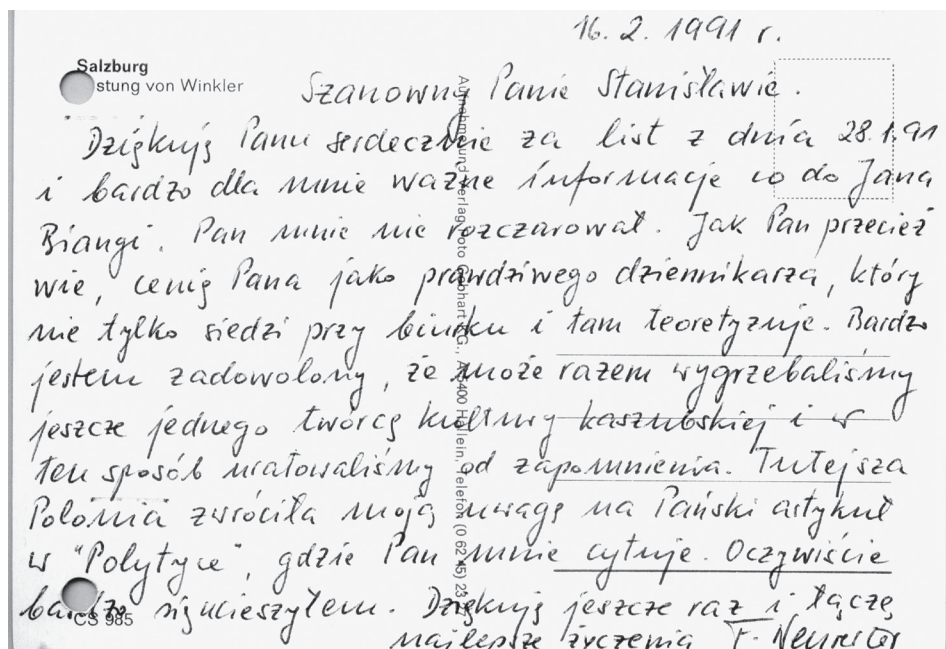 16. 2. 1991 r.
Salzburg
stung von Winkler
Szanowny Panie Stanisławie.
Dziękuję Panu serdecznie za list z dnia 28.1.91
i bardzo dla mnie ważne informacje co do Jana
Biangi. Pan mnie nie rozczarował. Jak Pan przecież
wie, cenię Pana jako prawdziwego dziennikarza, który
nie tylko siedzi przy biurku i tam teoretyzuje. Bardzo
jestem zadowolony, że może razem wygrzebaliśmy
jeszcze jednego twórcę kultury kaszubskiej i w
ten sposób uratowaliśmy od zapomnienia. Tutejsza
Polonia zwróciła moją uwagę na Pański artykuł
w "Polytyce", gdzie Pan mnie cytuje. Oczywiście
bardzo się ucieszyłem. Dziękuję jeszcze raz i łączę
CS 985
najlepsze życzenia F. Neureiter